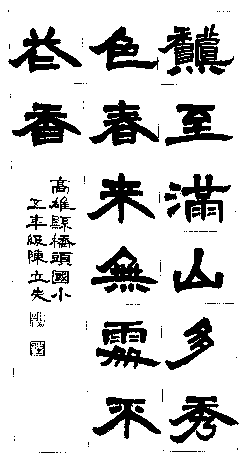 龝至滿山多秀
色春来無處不
花香
高雄縣橋頭國小
五年級陳立